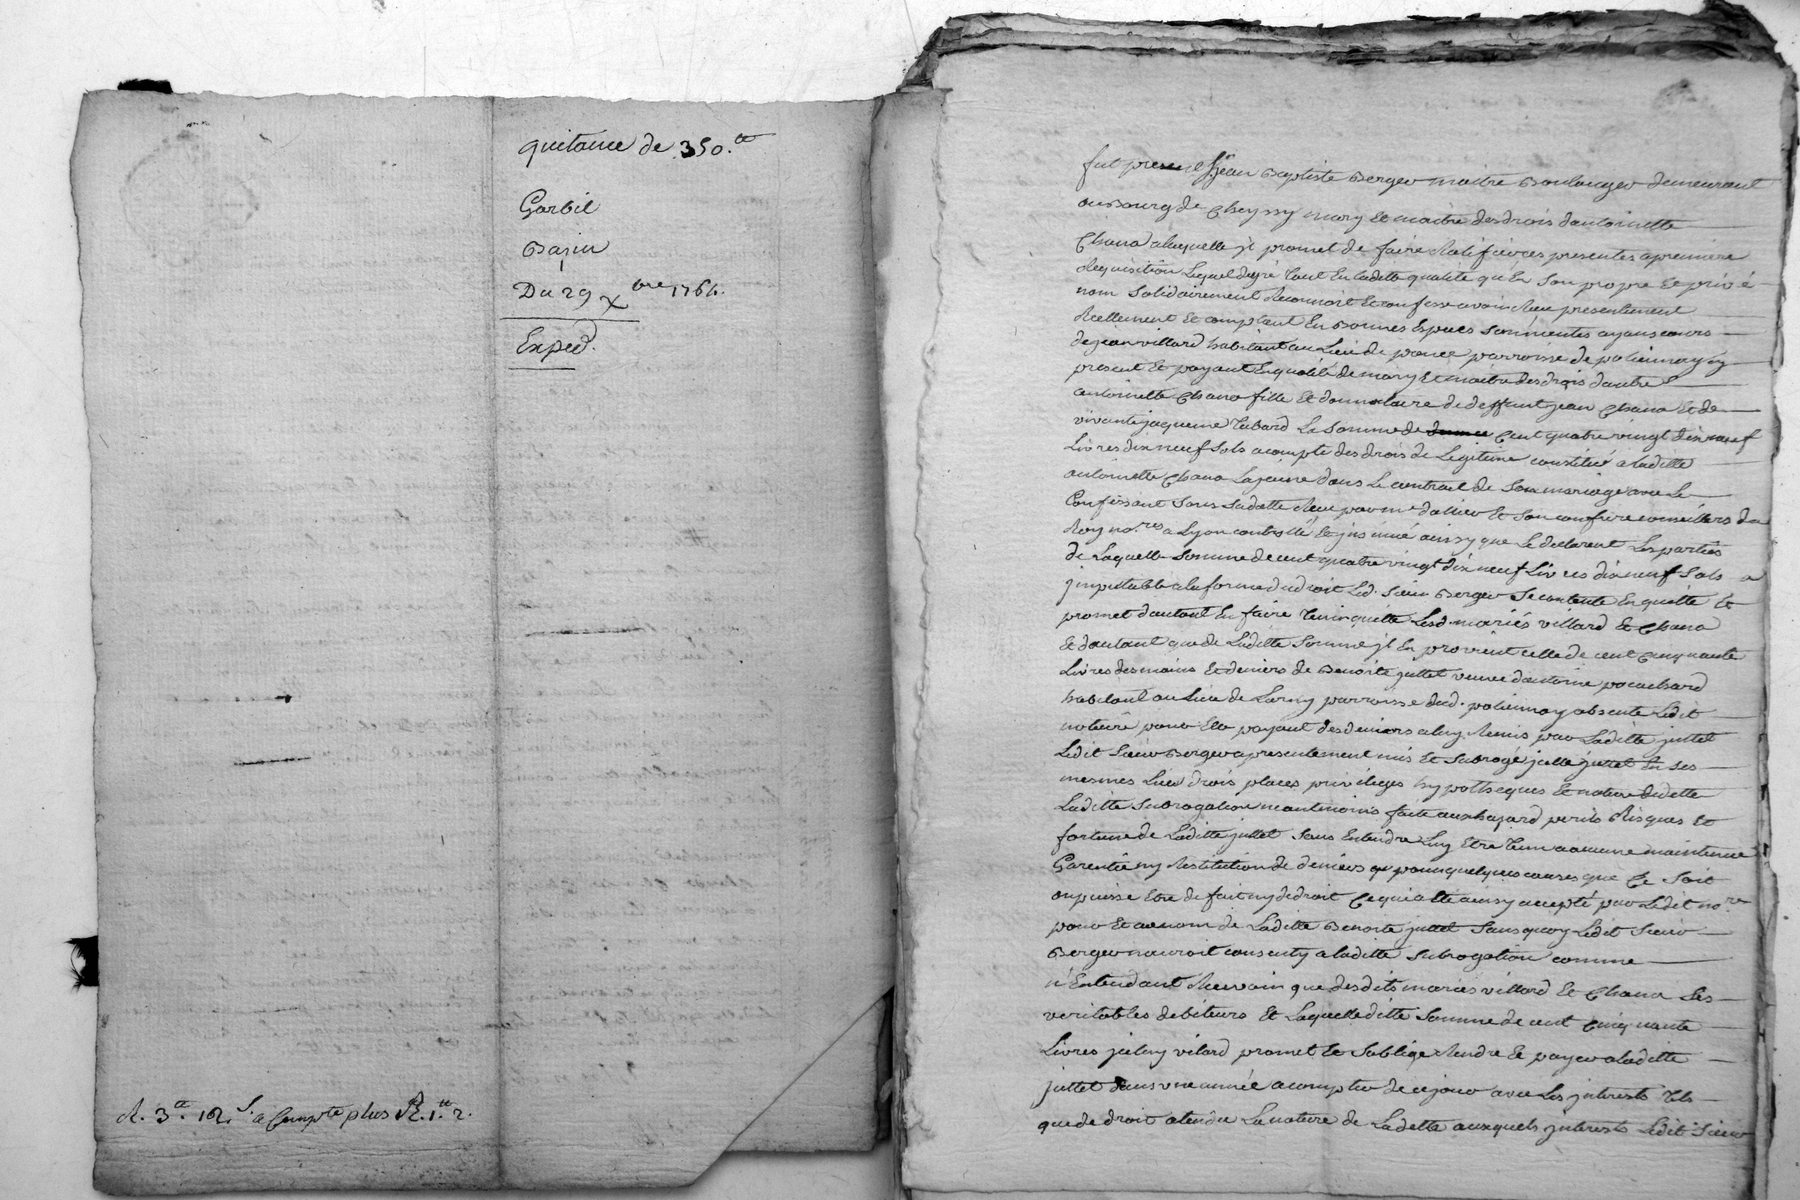 quitance de 350.tt
Garbil
Bazin
Du 29 xbre 1764.
Exped.
R. 3tt. 12s. a Compte plus R. 1tt. 2.
fut presen sr jean Baptiste Berger maitre Boulanger demeurant
au Bourg de Cheyssy mary et maitre des drois dantoinette
Chana a laquelle jl promet de faire Ratifier ces presentes a premiere
Requisition Lequel degré tant En laditte qualité qu'En son propre et privé
nom solidairement Reconnoit et confesse avoir Reçu presentement
Reellement et comptant En Bonnes Especes sonnentes ayans cours
de jean villard habitant au Lieu de poncé parroisse de polionnay jcy
present et payant En qualité de mary et maitre des drois dautre
antoinette Chana fille et donnataire de deffunt jean Chana et de
vivante jaqueme Tabard La somme de cent quatre vingt dix neuf
Livres dix neuf sols acompte des drois de Legitime constitué a laditte
antoinette Chana La jeune dans Le contrat de son mariage avec Le
Confessant sous sa datte Reçu par me dalier et son confrere conseillers du
Roy nores a Lyon controllé et jnsinué ainsy que Le declarent Les parties
de Laquelle somme de cent quatre vingt dix neuf Livres dix neuf sols
jmputable a la forme du droit Led. sieur Berger se contente En quitte et
promet dautant En faire tenir quitte Lesd. mariés villard et Chana
Et dautant que de Laditte somme jl En provient celle de cent cinquante
Livres des mains et deniers de Benoite juttet veuve dantoine pocachard
habitant au Lieu de Larny parroisse dud. polionnay absente Ledit
notaire pour Elle payant des deniers a luy Remis par Laditte juttet
Ledit sieur Berger a presentement mis et subrogé jcelle juttet En ses
mesmes Lieu drois places privileges hypotheques et nature de dette
Laditte subrogation neantmoins faite aux hazard perils Risques et
fortune de Laditte juttet sans Entendre Luy Etre tenu a aucune maintenue
Garentie ny Restitution de deniers pour quelques causes que ce soit
ou puisse Etre de fait ny de droit ce qui a été ainsy accepté par Ledit nore
pour et au nom de Laditte Benoite juttet sans quoy Ledit sieur
Berger nauroit consenty a laditte subrogation comme
n'Entendant Recevoir que desdits mariés villard et Chana ses
veritables debiteurs et Laquelle ditte somme de cent cinquante
Livres jceluy vilard promet et soblige Rendre et payer a laditte
juttet dans une année a compter de ce jour avec Les jnterests tels
que de droit atendu La nature de La dette auxquels jnterests Ledit sieur